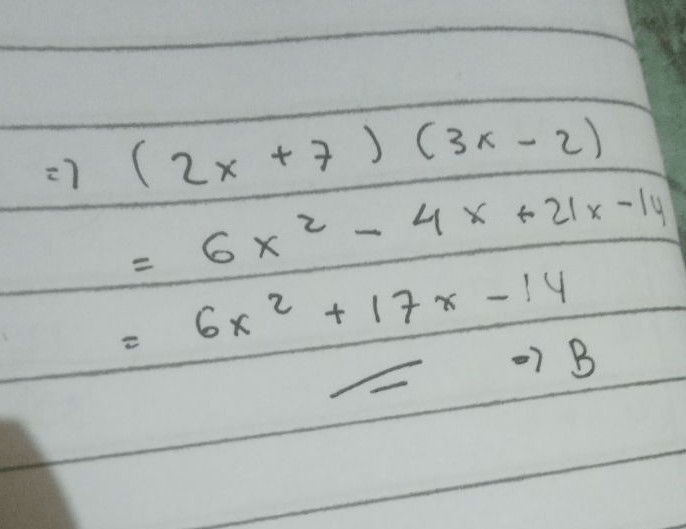 ⇒ (2x + 7) (3x - 2)
= 6x² - 4x + 21x - 14
= 6x² + 17x - 14
⇒ B